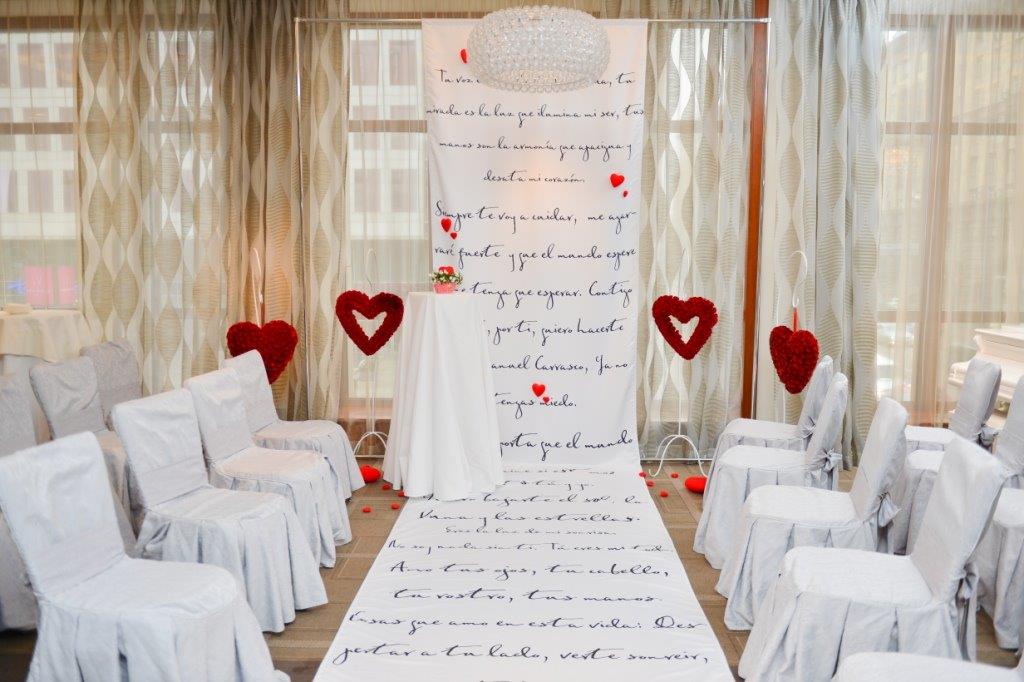 Tu voz a, tu
mirada es la luz que ilumina mi ser, tus
manos son la armonía que apacigua y
desata mi corazón.
Siempre te voy a cuidar, me agar-
raré fuerte y que el mundo espere
tenga que esperar. Contigo
, por ti, quiero hacerte
anuel Carrasco, Ya no
tengas miedo.
porta que el mundo
el sol, la
Luna y las estrellas.
Eres la luz de mi sonrisa
No soy nada sin ti. Tú eres mi todo
Amo tus ojos, tu cabello,
tu rostro, tus manos.
Cosas que amo en esta vida: Des
pertar a tu lado, verte sonreir,